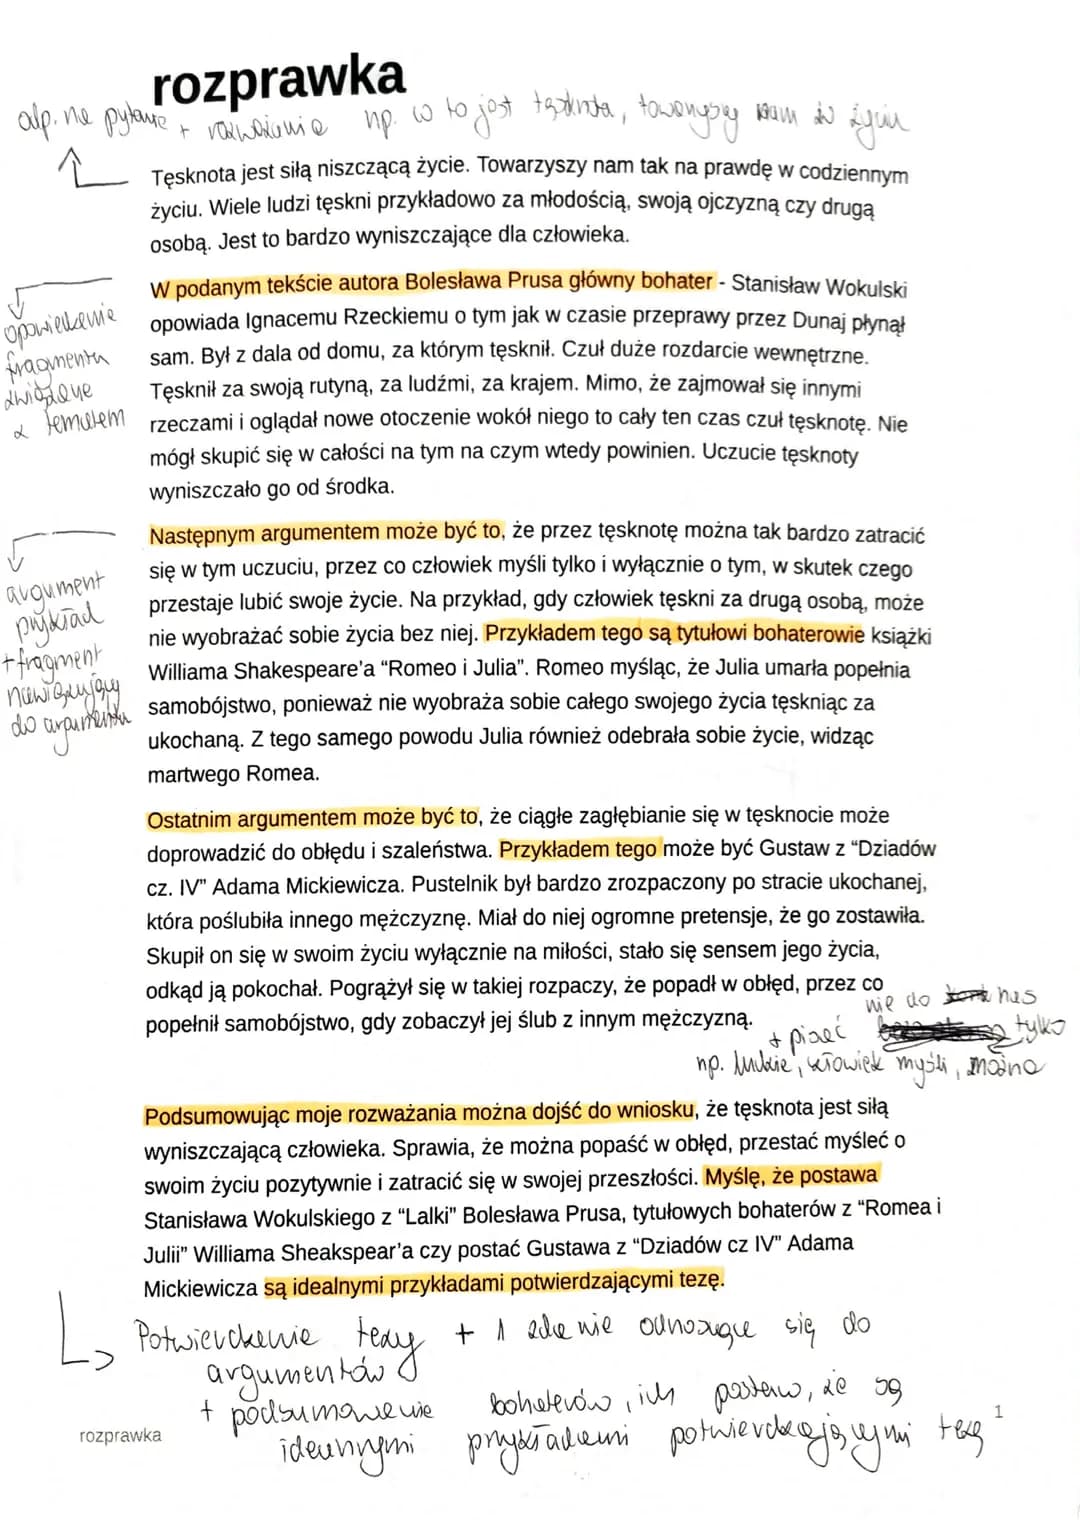 rozprawka
odp. na pytanie + rozważania np. co to jest tęsknota, towarzyszy nam w życiu
Tęsknota jest siłą niszczącą życie. Towarzyszy nam tak na prawdę w codziennym
życiu. Wiele ludzi tęskni przykładowo za młodością, swoją ojczyzną czy drugą
osobą. Jest to bardzo wyniszczające dla człowieka.
W podanym tekście autora Bolesława Prusa główny bohater - Stanisław Wokulski
opowiada Ignacemu Rzeckiemu o tym jak w czasie przeprawy przez Dunaj płynął
sam. Był z dala od domu, za którym tęsknił. Czuł duże rozdarcie wewnętrzne.
Tęsknił za swoją rutyną, za ludźmi, za krajem. Mimo, że zajmował się innymi
rzeczami i oglądał nowe otoczenie wokół niego to cały ten czas czuł tęsknotę. Nie
mógł skupić się w całości na tym na czym wtedy powinien. Uczucie tęsknoty
wyniszczało go od środka.
opowiedzenie
fragmentu
związane
z tematem
Następnym argumentem może być to, że przez tęsknotę można tak bardzo zatracić
się w tym uczuciu, przez co człowiek myśli tylko i wyłącznie o tym, w skutek czego
przestaje lubić swoje życie. Na przykład, gdy człowiek tęskni za drugą osobą, może
nie wyobrażać sobie życia bez niej. Przykładem tego są tytułowi bohaterowie książki
Williama Shakespeare'a "Romeo i Julia". Romeo myśląc, że Julia umarła popełnia
samobójstwo, ponieważ nie wyobraża sobie całego swojego życia tęskniąc za
ukochaną. Z tego samego powodu Julia również odebrała sobie życie, widząc
martwego Romea.
argument
przykład
+ fragment
nawiązujący
do argumentu
Ostatnim argumentem może być to, że ciągłe zagłębianie się w tęsknocie może
doprowadzić do obłędu i szaleństwa. Przykładem tego może być Gustaw z "Dziadów
cz. IV" Adama Mickiewicza. Pustelnik był bardzo zrozpaczony po stracie ukochanej,
która poślubiła innego mężczyznę. Miał do niej ogromne pretensje, że go zostawiła.
Skupił on się w swoim życiu wyłącznie na miłości, stało się sensem jego życia,
odkąd ją pokochał. Pogrążył się w takiej rozpaczy, że popadł w obłęd, przez co
popełnił samobójstwo, gdy zobaczył jej ślub z innym mężczyzną.
nie do nas
+ pisać tylko
np. ludzie, człowiek myśli, można
Podsumowując moje rozważania można dojść do wniosku, że tęsknota jest siłą
wyniszczającą człowieka. Sprawia, że można popaść w obłęd, przestać myśleć o
swoim życiu pozytywnie i zatracić się w swojej przeszłości. Myślę, że postawa
Stanisława Wokulskiego z "Lalki" Bolesława Prusa, tytułowych bohaterów z "Romea i
Julii" Williama Sheakspear'a czy postać Gustawa z "Dziadów cz IV" Adama
Mickiewicza są idealnymi przykładami potwierdzającymi tezę.
Potwierdzenie tezy + 1 zdanie odnoszące się do
argumentów
+ podsumowanie bohaterów, ich postaw, że są
idealnymi przykładami potwierdzającymi tezę
rozprawka
1